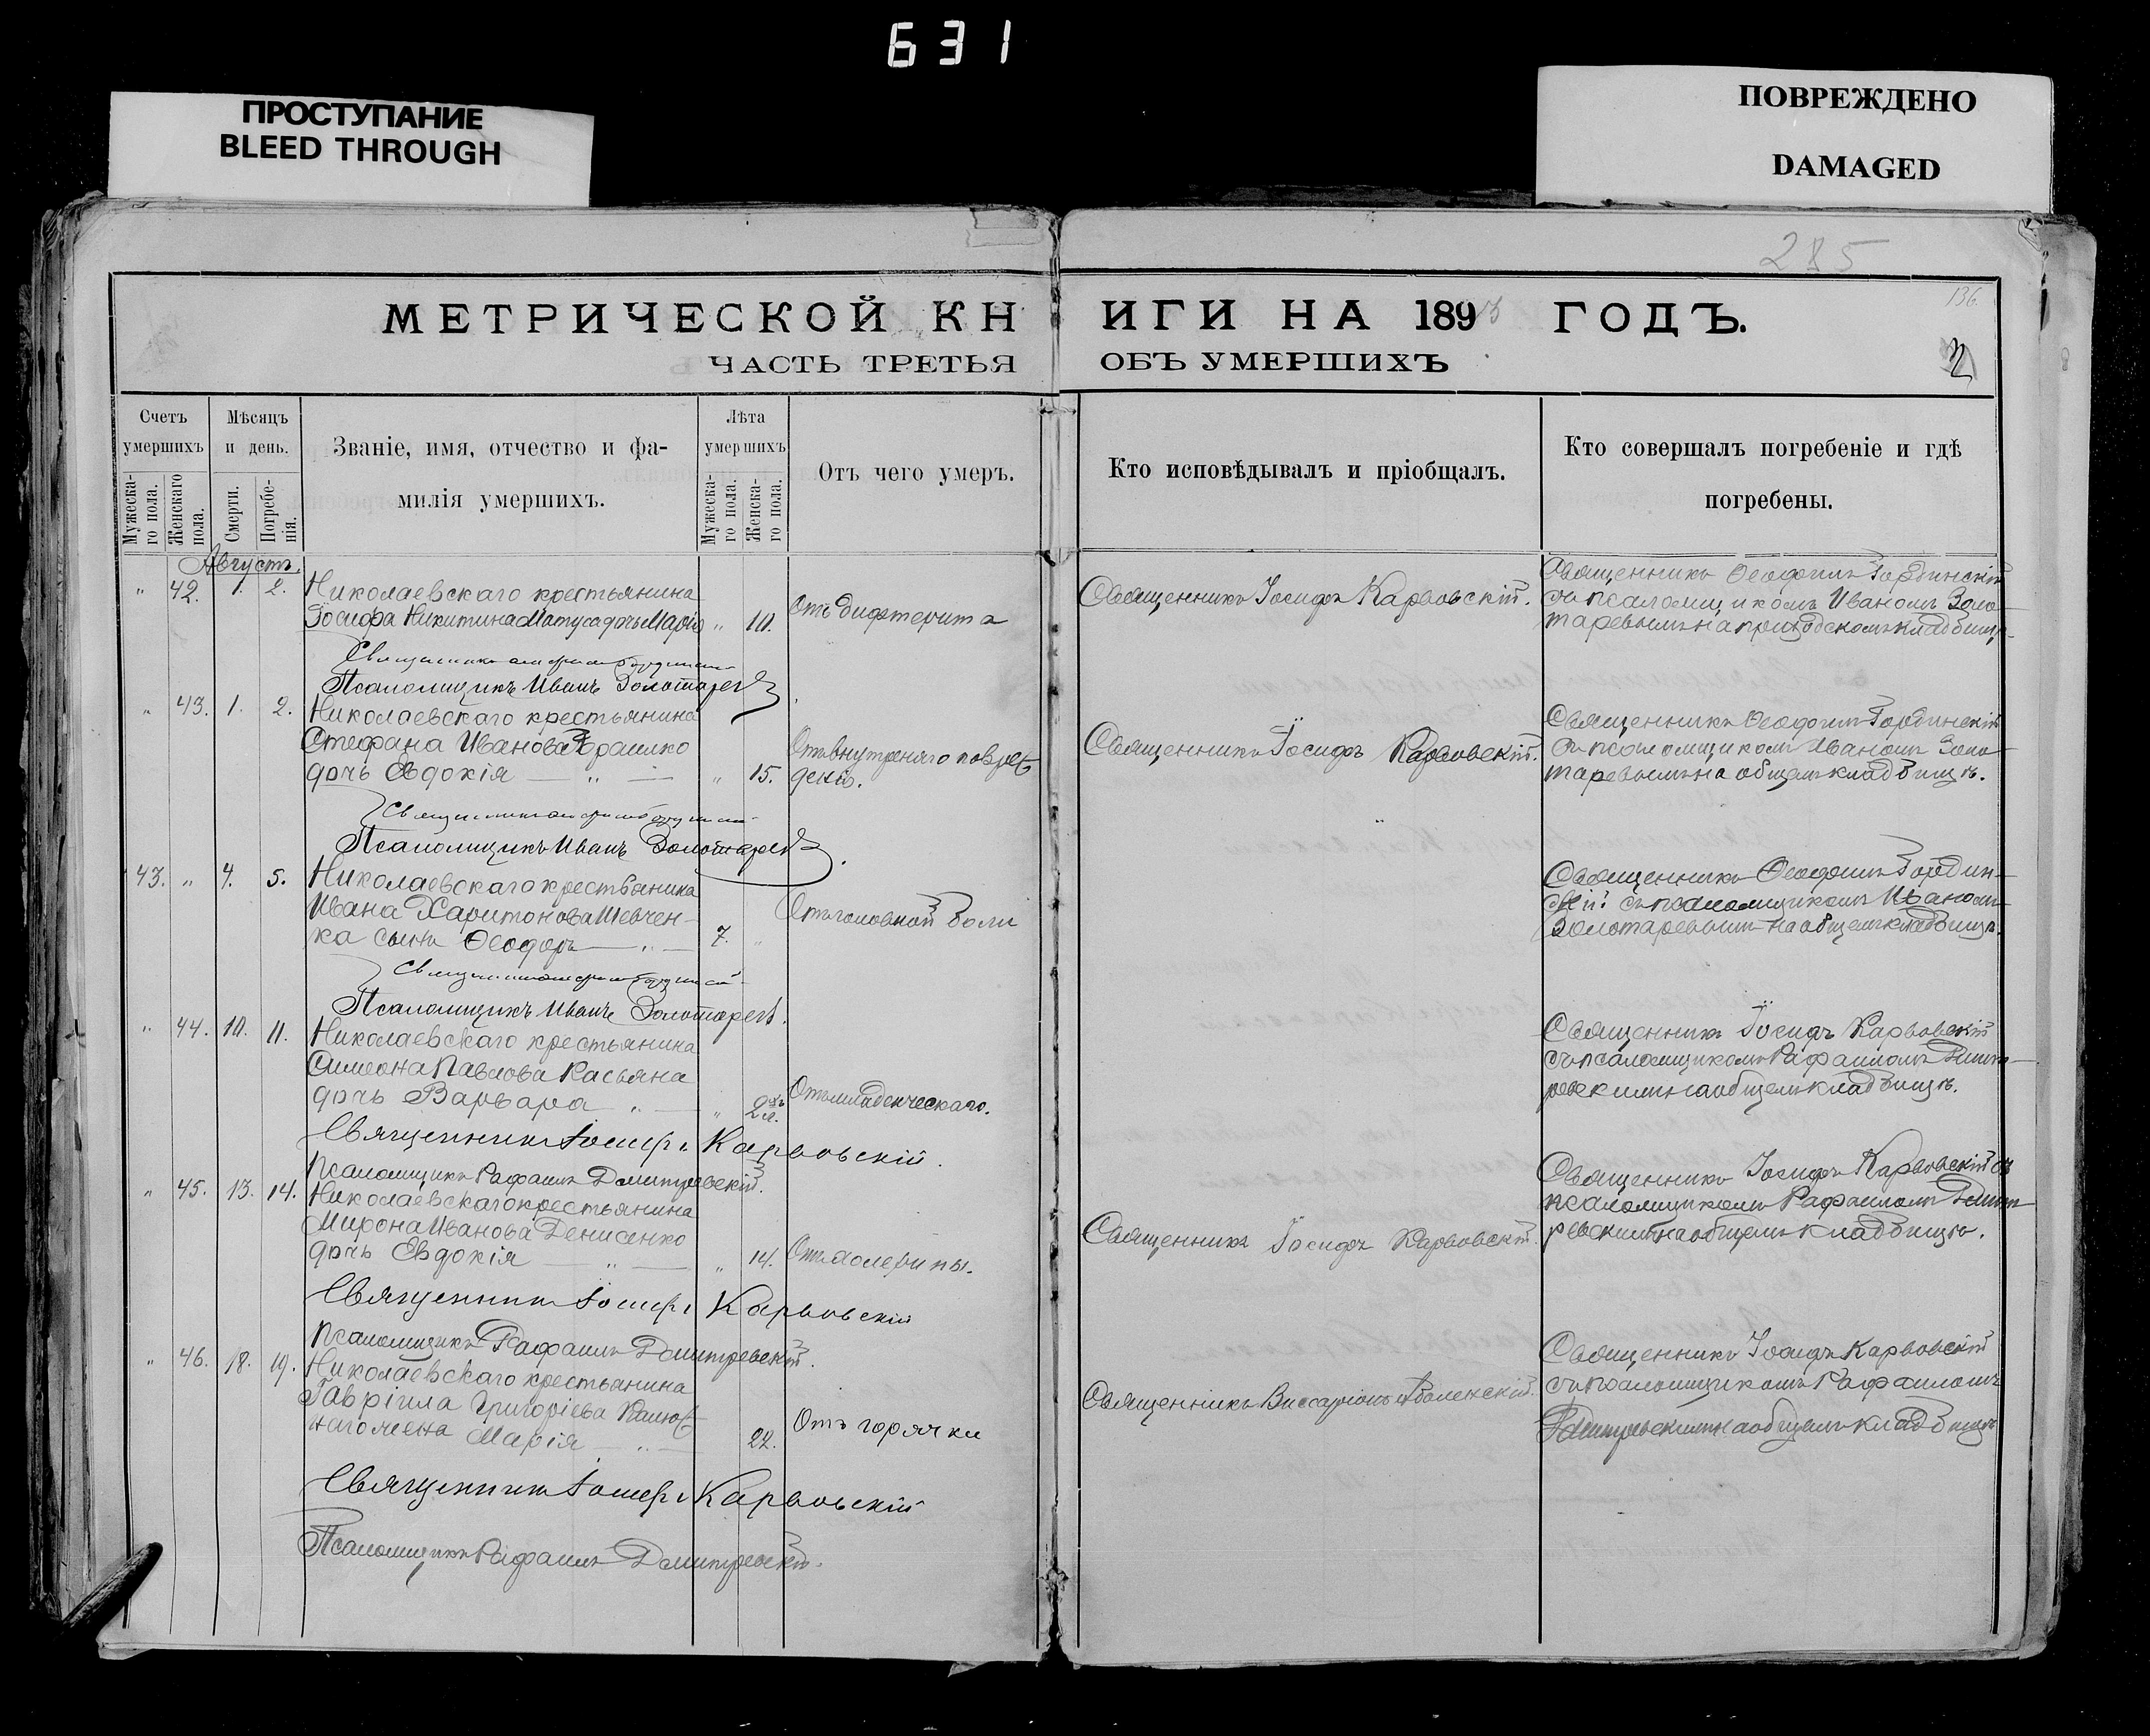 631
ПРОСТУПАНИЕ
BLEED THROUGH
ПОВРЕЖДЕНО
DAMAGED
285
136.
МЕТРИЧЕСКОЙ КНИГИ НА 1893 ГОДЪ.
ЧАСТЬ ТРЕТЬЯ ОБЪ УМЕРШИХЪ
Счетъ умершихъ
Мужеска-го пола.
Женскаго пола.
Мѣсяцъ и день.
Смерти.
Погребе-нія.
Званіе, имя, отчество и фа-
милія умершихъ.
Лѣта умершихъ
Мужеска-го пола.
Женска-го пола.
Отъ чего умеръ.
Кто исповѣдывалъ и пріобщалъ.
Кто совершалъ погребеніе и гдѣ
погребены.
Августъ.
" 42. 1. 2. Николаевскаго крестьянина
Іосифа Никитина Матуса дочь Марія " 10. Отъ дифтерита
Священникъ Іосифъ Карвовскій.
Священникъ Ѳеодосій Гординскій
съ псаломщикомъ Иваномъ Золо-
таревымъ на приходскомъ кладбищѣ
Псаломщикъ Иванъ Золотаревъ
" 43. 1. 2. Николаевскаго крестьянина
Стефана Иванова
дочь Евдокія — " — " 15. Отъ внутреняго повреж
денія.
Священникъ Іосифъ Карвовскій.
Священникъ Ѳеодосій Гординскій
съ псаломщикомъ Иваномъ Золо-
таревымъ на общемъ кладбищѣ.
Псаломщикъ Иванъ Золотаревъ
43. " 4. 5. Николаевскаго крестьянина
Ивана Харитонова Шевчен-
ка сынъ Ѳеодоръ — " — 7. " Отъ головной боли
Священникъ Ѳеодосій Гордин-
скій съ псаломщикомъ Иваномъ
Золотаревымъ на общемъ кладбищѣ.
Псаломщикъ Иванъ Золотаревъ.
" 44. 10. 11. Николаевскаго крестьянина
Симеона Павлова Касьяна
дочь Варвара — " — " 2 Отъ младенческаго.
Священникъ Іосифъ Карвовскій
съ псаломщикомъ Рафаиломъ Дмит-
ревскимъ на общемъ кладбищѣ.
Священникъ Іосифъ Карвовскій.
Псаломщикъ Рафаилъ Дмитревскій.
" 45. 13. 14. Николаевскаго крестьянина
Мирона Иванова Денисенко
дочь Евдокія — " — " 14. Отъ холерины.
Священникъ Іосифъ Карвовскій.
Священникъ Іосифъ Карвовскій съ
псаломщикомъ Рафаиломъ Дмит-
ревскимъ на общемъ кладбищѣ.
Священникъ Іосифъ Карвовскій
Псаломщикъ Рафаилъ Дмитревскій.
" 46. 18. 19. Николаевскаго крестьянина
Гавріила Григоріева
жена Марія — " — 22. Отъ горячки
Священникъ Виссаріонъ
Священникъ Іосифъ Карвовскій
съ псаломщикомъ Рафаиломъ
Дмитревскимъ на общемъ кладбищѣ
Священникъ Іосифъ Карвовскій
Псаломщикъ Рафаилъ Дмитревскій.